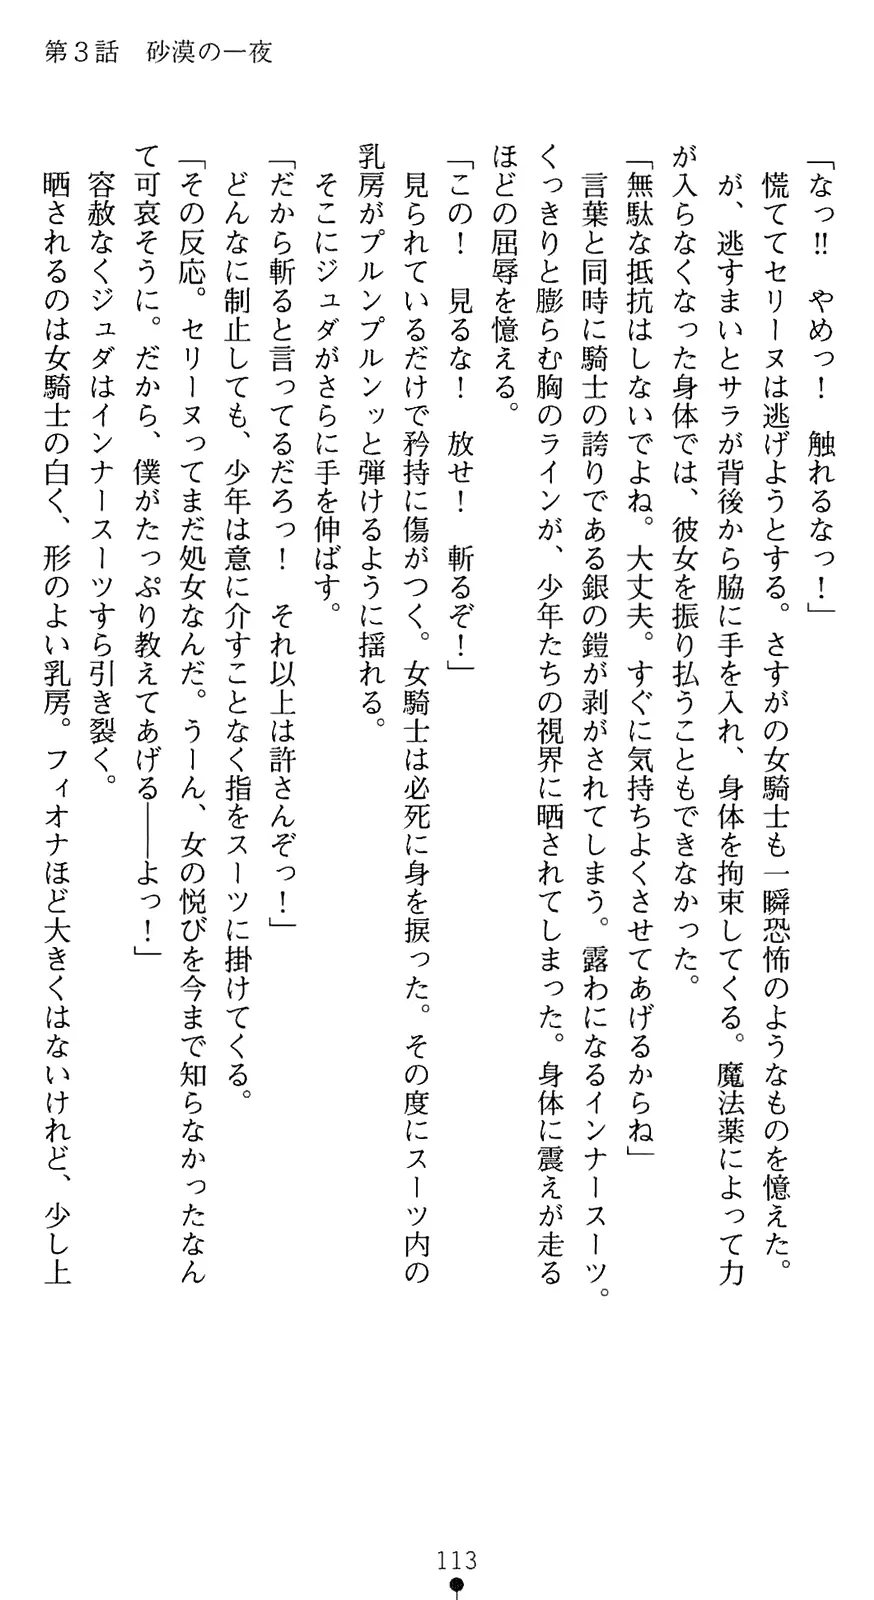 第３話　砂漠の一夜
「なっ!!　やめっ！　触れるなっ！」
　慌ててセリーヌは逃げようとする。さすがの女騎士も一瞬恐怖のようなものを憶えた。
　が、逃すまいとサラが背後から脇に手を入れ、身体を拘束してくる。魔法薬によって力
が入らなくなった身体では、彼女を振り払うこともできなかった。
「無駄な抵抗はしないでよね。大丈夫。すぐに気持ちよくさせてあげるからね」
　言葉と同時に騎士の誇りである銀の鎧が剥がされてしまう。露わになるインナースーツ。
くっきりと膨らむ胸のラインが、少年たちの視界に晒されてしまった。身体に震えが走る
ほどの屈辱を憶える。
「この！　見るな！　放せ！　斬るぞ！」
　見られているだけで矜持に傷がつく。女騎士は必死に身を捩った。その度にスーツ内の
乳房がプルンプルンッと弾けるように揺れる。
　そこにジュダがさらに手を伸ばす。
「だから斬ると言ってるだろっ！　それ以上は許さんぞっ！」
　どんなに制止しても、少年は意に介すことなく指をスーツに掛けてくる。
「その反応。セリーヌってまだ処女なんだ。うーん、女の悦びを今まで知らなかったなん
て可哀そうに。だから、僕がたっぷり教えてあげる――よっ！」
　容赦なくジュダはインナースーツすら引き裂く。
　晒されるのは女騎士の白く、形のよい乳房。フィオナほど大きくはないけれど、少し上
113